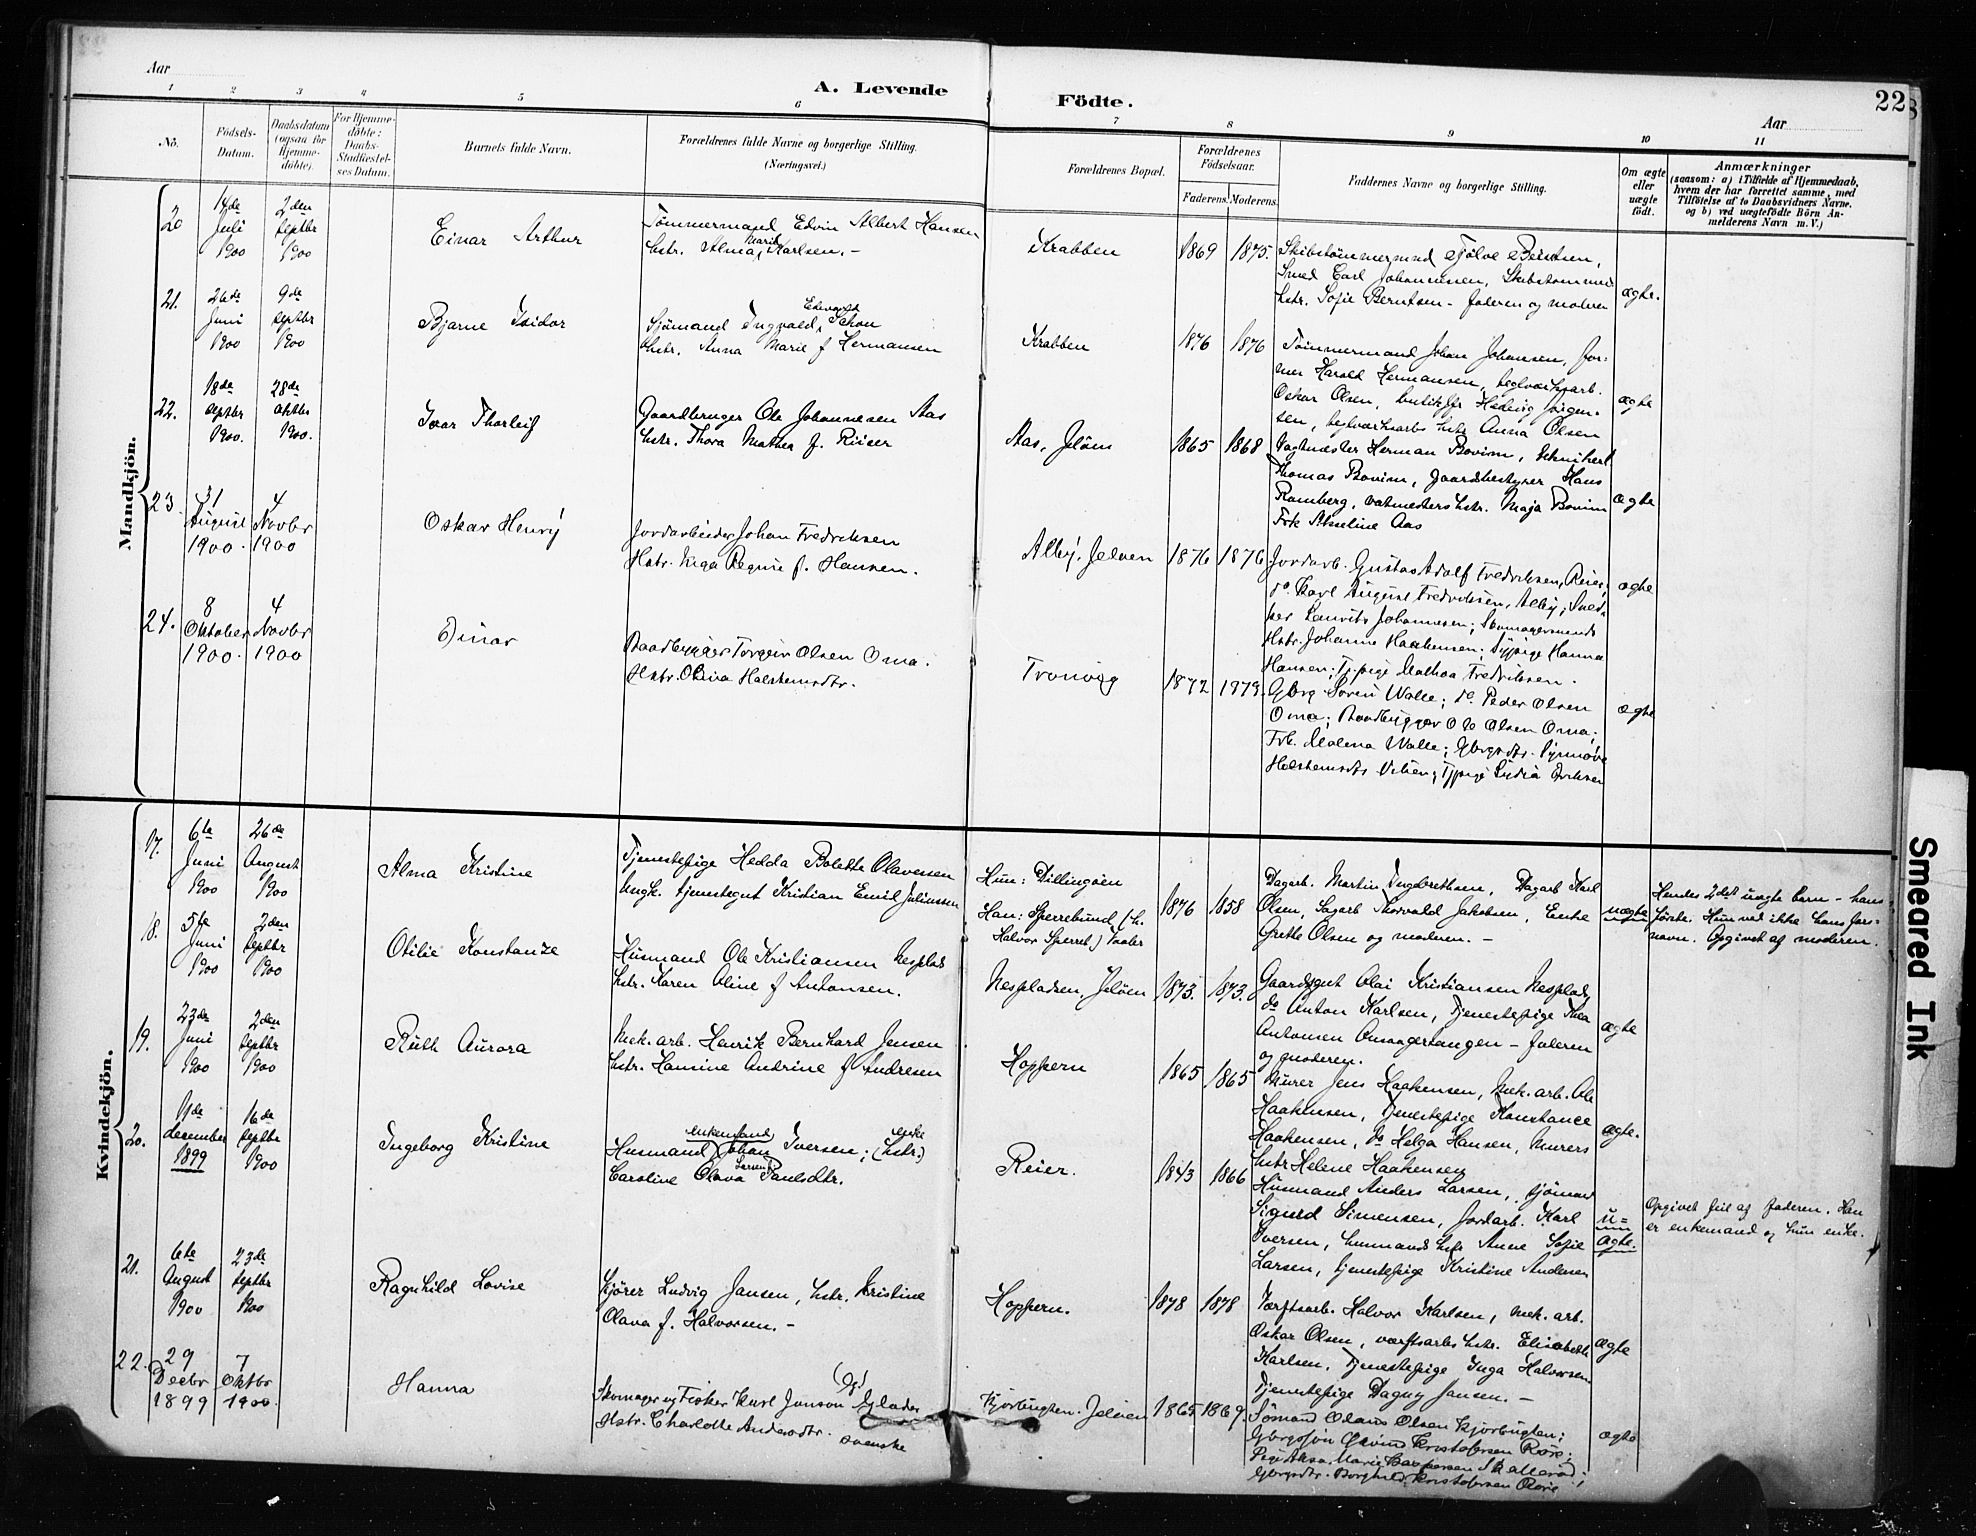 Aar
A. Levende
Födte.
Aar
22
1 2 3 4 5 6 7 8 9 10 11
No.
Födsels-
Datum.
Daabsdatum
(ogsaa for
Hjemme-
döbte).
For Hjemme-
döbte:
Daabs-
Stadfæstel-
ses Datum.
Barnets fulde Navn.
Forældrenes fulde Navne og borgerlige Stilling.
(Næringsvei.)
Forældrenes Bopæl.
Forældrenes
Födselsaar.
Faderens. Moderens.
Faddernes Navne og borgerlige Stilling.
Om ægte
eller
uægte
födt.
Anmærkninger
(saasom: a) i Tilfælde af Hjemmedaab,
hvem der har forrettet samme, med
Tilföielse af to Daabsvidners Navne.
og b) ved uægtefödte Börn An-
melderens Navn m. V.)
Mandkjön.
20
14de
Juli
1900
2den
Septbr
1900
Einar Arthur
Tömmermand Edvin Albert Hansen
hstr. Alma Marie Karlsen. -
Krabben
1869
1875.
Skibstømmermand Tjølve Berntsen,
Smed Carl Johannesen, Skibstømmer
hstr. Sofie Berntsen - faderen og moderen
ægte.
21.
26de
Juni
1900
9de
Septbr
1900
Bjarne Isidor
Sjömand Ingvald Edevardt Schou
hstr. Anna Marie f Hermansen
Krabben
1876
1876
Tömmermand Johan Johansen, for-
mer Harald Hermansen, teglværksarb.
Oskar Olsen, butikfr Hedvig Jörgen-
sen, teglværksarbs hstr Anna Olsen
ægte
22.
18de
Septbr
1900.
28de
Oktbr
1900.
Ivar Thorleif
Gaardbruger Ole Johannesen Aas
hstr. Thora Mathea f. Riiser
Aas, Jelöen
1865
1868
Vagtmester Herman Bovim,
Thomas Bovim, Gaardbestyrer Hans
Ramberg, vatmesters hstr. Maja Bovim
Frk Aas
ægte
23.
31
August
1900.
4
Novbr
1900
Oskar Henry
Jordarbeider Johan Fredriksen
Hstr. Inga Regine f. Hansen.
Alby, Jeløen
1876
1876
Jordarb. Gustav Adolf Fredriksen, Reier;
do. Karl August Fredriksen, Alby; Sned-
ker Laurits Johannesen; Skomagersvends
Hstr. Johanne Haakensen; Sypige Hanna
Hansen; Tj.pige Mathea Fredriksen.
ægte
24.
8
Oktober
1900.
4
Novbr
1900
Einar
Baadbygger Torgeir Olsen Oma.
Hstr. Olina Halstensdtr.
Tronvig
1872
1979.
Gbrg Sören Walle; do. Peder Olsen
Oma; Baadbygger Ole Olsen Oma;
Frk. Malena Walle; Gbrgsdtr.
Halstensdtr; Tjpige Lydia Eriksen
ægte
Kvindekjön.
17.
6te
Juni
1900
26de
August
1900
Alma Kristine
Tjenestepige Hedda Bolette Olavesen
Ungk. tjenestegut Kristian Emil Juliussen
Hun: Dillingöen
Han: Sperrebund (h.
Halvor Sperreb.) Vaaler
1876
1858
Dagarb. Martin Ingebrethsen, Dagarb Karl
Olsen, Sagarb Thorvald Jakobsen, Enke
Grethe Olsen og moderen. -
uægte
Hendes 2det uægte barn - hans
første. Hun ved ikke hans fars-
navn. Opgivet af moderen.
18.
5te
Juni
1900
2den
Septbr
1900
Otilie Konstanse
Husmand Ole Kristiansen Nesplads
hstr. Karen Oline f Antonsen.
Nespladsen, Jelöen
1873.
1873.
Gaardsgut Olai Kristiansen Nesplads,
do Anton Karlsen, Tjenestepige Thea
Antonsen - faderen
og moderen.
ægte
19.
23de
Juni
1900
2den
Septbr
1900
Ruth Aurora
Mek. arb. Henrik Bernhard Jensen
hstr. Hanine Andrine f Andresen
Hoppern
1865
1865
Murer Jens Haakensen, Mek. arb. Ole
Haakensen, Tjenestepige Konstance
Haakensen, do Helga Hansen, Murers
hstr Helene Haakensen
ægte.
20.
11de
december
1899
16de
Septbr
1900
Ingeborg Kristine
Husmand enkemand Johan Iversen; (hstr.) enke
Caroline Olava Larsen Paulsdtr.
Reier.
1843
1866
Husmand Anders Larsen, sjömand
Sigurd Simensen, Jordarb. Karl
Iversen, husmands hstr Anne Sofie
Larsen, tjenestepige Kristine Andersen
u=
ægte.
Opgivet feil af faderen. Han
er enkemand og hun enke.
21.
6te
August
1900
23de
Septbr
1900
Ragnhild Lovise
Kjörer Ludvig Jansen, hstr. Kristine
Olava f. Halvorsen. -
Hoppern.
1878
1878
Værftsarb. Halvor Karlsen, Mek. arb.
Oskar Olsen, værftsarbs hstr. Elisabeth
Karlsen, Tjenestepige Inga Halvorsen
Tjenestepige Dagny Jansen. -
ægte
22.
29
Decbr
1899
7
Oktbr
1900.
Hanna
Skomager og Fisker Karl Janson
Hstr. Charlotte Andersdtr.
svenske
Kjörbugten. Jeløen
1865
1869.
Sömand Olaus Olsen Kjörbugten;
Gbrgssön Kristofersen Rörie;
Marie Kaspersen Skallerød;
Gbrgsdtr. Borghild Kristofersen Rörie
ægte
Smeared Ink